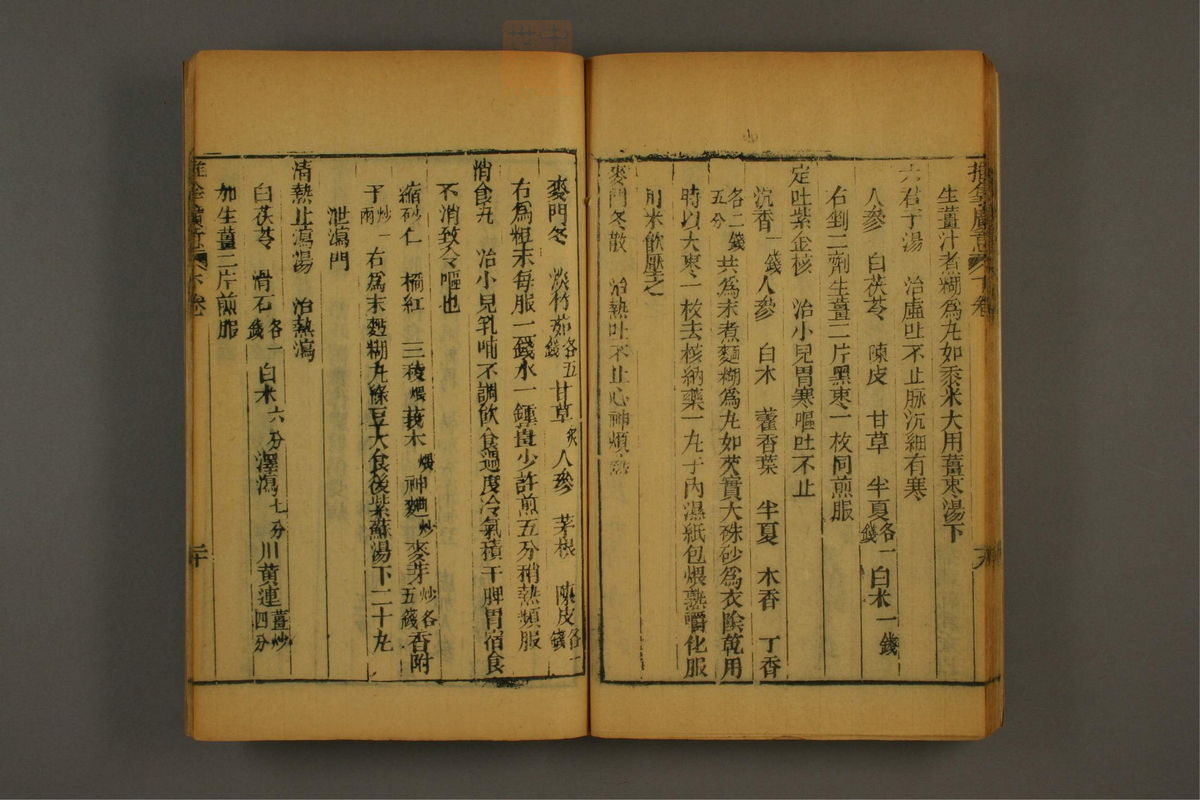 推拿廣意 下卷
生薑汁煮糊為丸如黍米大用薑棗湯下
六君子湯 治虛吐不止脉沉細有寒
人參 白茯苓 陳皮 甘草 半夏各一錢 白朮一錢
右剉二劑生薑二片黑棗一枚同煎服
定吐紫金核 治小兒胃寒嘔吐不止
沉香一錢 人參 白朮 藿香葉 半夏 木香 丁香
各二錢五分 共為末煮麵糊為丸如芡實大硃砂為衣陰乾用
時以大棗一枚去核納藥一丸于內濕紙包煨熟嚼化服
用米飲壓之
麥門冬散 治熱吐不止心神煩熱
麥門冬 淡竹茹各五錢 甘草炙 人參 茅根 陳皮各一錢
右為粗末每服一錢水一鍾薑少許煎五分稍熱頻服
消食丸 治小兒乳哺不調飲食過度冷氣積于脾胃宿食
不消致令嘔也
縮砂仁炒 橘紅 三稜煨 莪朮煨 神麯炒 麥芽炒各五錢 香附
子炒一兩 右為末麵糊丸綠豆大食後紫蘇湯下二十丸
泄瀉門
清熱止瀉湯 治熱瀉
白茯苓 滑石各一錢 白朮六分 澤瀉七分 川黃連薑炒四分
加生薑二片煎服
推拿廣意 下卷 二十